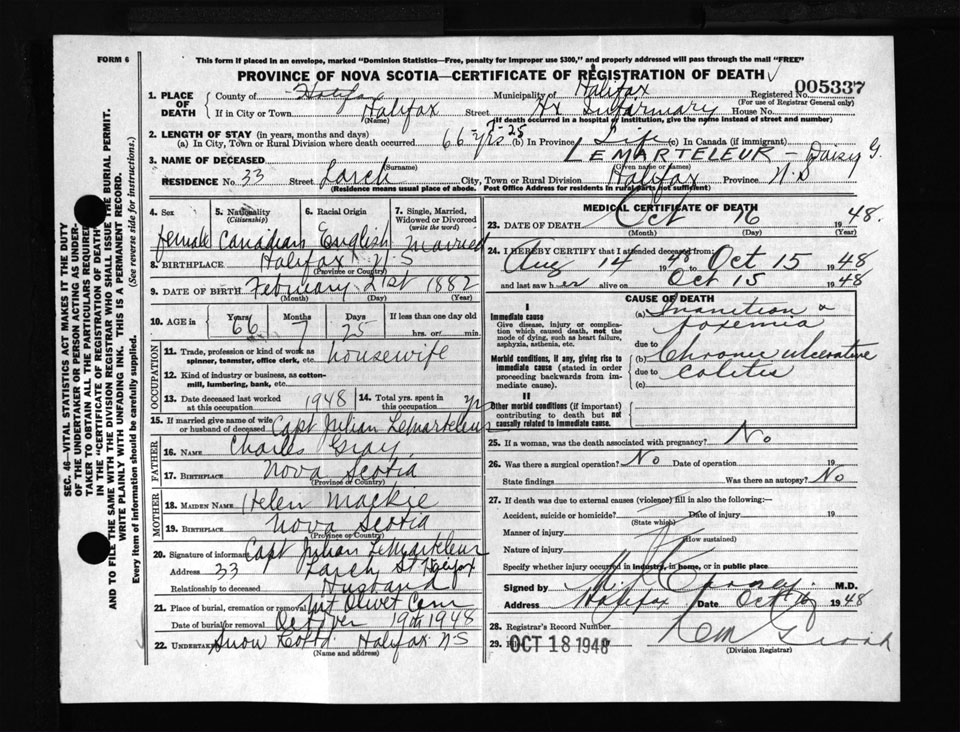 FORM 6
This form if placed in an envelope, marked "Dominion Statistics—Free, penalty for improper use $300," and properly addressed will pass through the mail "FREE"
PROVINCE OF NOVA SCOTIA—CERTIFICATE OF REGISTRATION OF DEATH
Registered No. 005337
(For use of Registrar General only)
1. PLACE OF DEATH County of Halifax Municipality of Halifax
If in City or Town Halifax Street Hx Infirmary House No.
(Name) (If death occurred in a hospital or institution, give the name instead of street and number)
2. LENGTH OF STAY (in years, months and days)
(a) In City, Town or Rural Division where death occurred 66 yrs 25 (b) In Province Life (c) In Canada (if immigrant)
3. NAME OF DECEASED LEMARTELEUR - Daisy G.
(Surname) (Given name or names)
RESIDENCE No. 33 Street Larch City, Town or Rural Division Halifax Province N.S
(Residence means usual place of abode. Post Office Address for residents in rural parts not sufficient)
4. Sex female
5. Nationality (Citizenship) Canadian
6. Racial Origin English
7. Single, Married, Widowed or Divorced (write the word) Married
8. BIRTHPLACE Halifax N.S
(Province or Country)
9. DATE OF BIRTH February 21st 1882
(Month) (Day) (Year)
10. AGE in Years 66 Months 7 Days 25 If less than one day old hrs. or min.
OCCUPATION
11. Trade, profession or kind of work as spinner, teamster, office clerk, etc. housewife
12. Kind of industry or business, as cotton-mill, lumbering, bank, etc.
13. Date deceased last worked at this occupation 1948
14. Total yrs. spent in this occupation yrs
15. If married give name of wife or husband of deceased Capt Julian LeMarteleur
FATHER
16. Name Charles Gray
17. Birthplace Nova Scotia
(Province or Country)
MOTHER
18. Maiden Name Helen Mackie
19. Birthplace Nova Scotia
(Province or Country)
20. Signature of informant Capt Julian LeMarteleur
Address 33 Larch St Halifax
Relationship to deceased Husband
21. Place of burial, cremation or removal Mt Olivet Cem
Date of burial or removal October 19th 1948
22. Undertaker Snow Co Ltd. Halifax N S
(Name and address)
MEDICAL CERTIFICATE OF DEATH
23. DATE OF DEATH Oct 16 1948.
(Month) (Day) (Year)
24. I HEREBY CERTIFY that I attended deceased from:
Aug 14 1948 to Oct 15 1948
and last saw her alive on Oct 15 1948
CAUSE OF DEATH
I
Immediate cause
Give disease, injury or complication which caused death, not the mode of dying, such as heart failure, asphyxia, asthenia, etc.
(a) Inanition & toxemia
due to
Morbid conditions, if any, giving rise to immediate cause (stated in order proceeding backwards from immediate cause).
(b) Chronic ulcerative colitis
due to
(c)
II
Other morbid conditions (if important) contributing to death but not causally related to immediate cause.
25. If a woman, was the death associated with pregnancy? No
26. Was there a surgical operation? No Date of operation 19
State findings Was there an autopsy? No
27. If death was due to external causes (violence) fill in also the following:—
Accident, suicide or homicide? Date of injury 19
(State which)
Manner of injury
(How sustained)
Nature of injury
Specify whether injury occurred in industry, in home, or in public place
Signed by M.D.
Address Halifax Date Oct 16 1948
28. Registrar's Record Number
29. OCT 18 1948
(Division Registrar)
SEC. 46—VITAL STATISTICS ACT MAKES IT THE DUTY
OF THE UNDERTAKER OR PERSON ACTING AS UNDER-
TAKER TO OBTAIN ALL THE PARTICULARS REQUIRED
IN THE "CERTIFICATE OF REGISTRATION OF DEATH"
AND TO FILE THE SAME WITH THE DIVISION REGISTRAR WHO SHALL ISSUE THE BURIAL PERMIT.
WRITE PLAINLY WITH UNFADING INK. THIS IS A PERMANENT RECORD.
Every item of information should be carefully supplied. (See reverse side for instructions.)